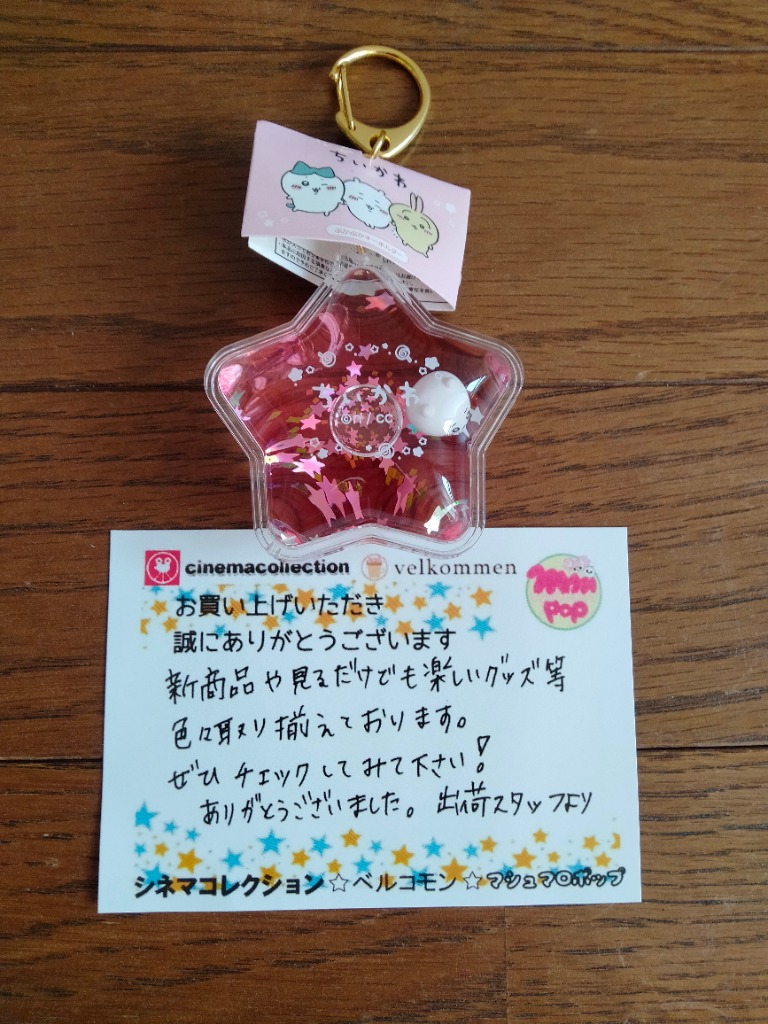 ちいかわ
ぷかぷかキーホルダー
ちいかわ
cinemacollection velkommen
pop
お買い上げいただき
誠にありがとうございます
新商品や見るだけでも楽しいグッズ等
色々取り揃えております。
ぜひチェックしてみて下さい!
ありがとうございました。 出荷スタッフより
シネマコレクション☆ベルコモン☆マシュマロポップ